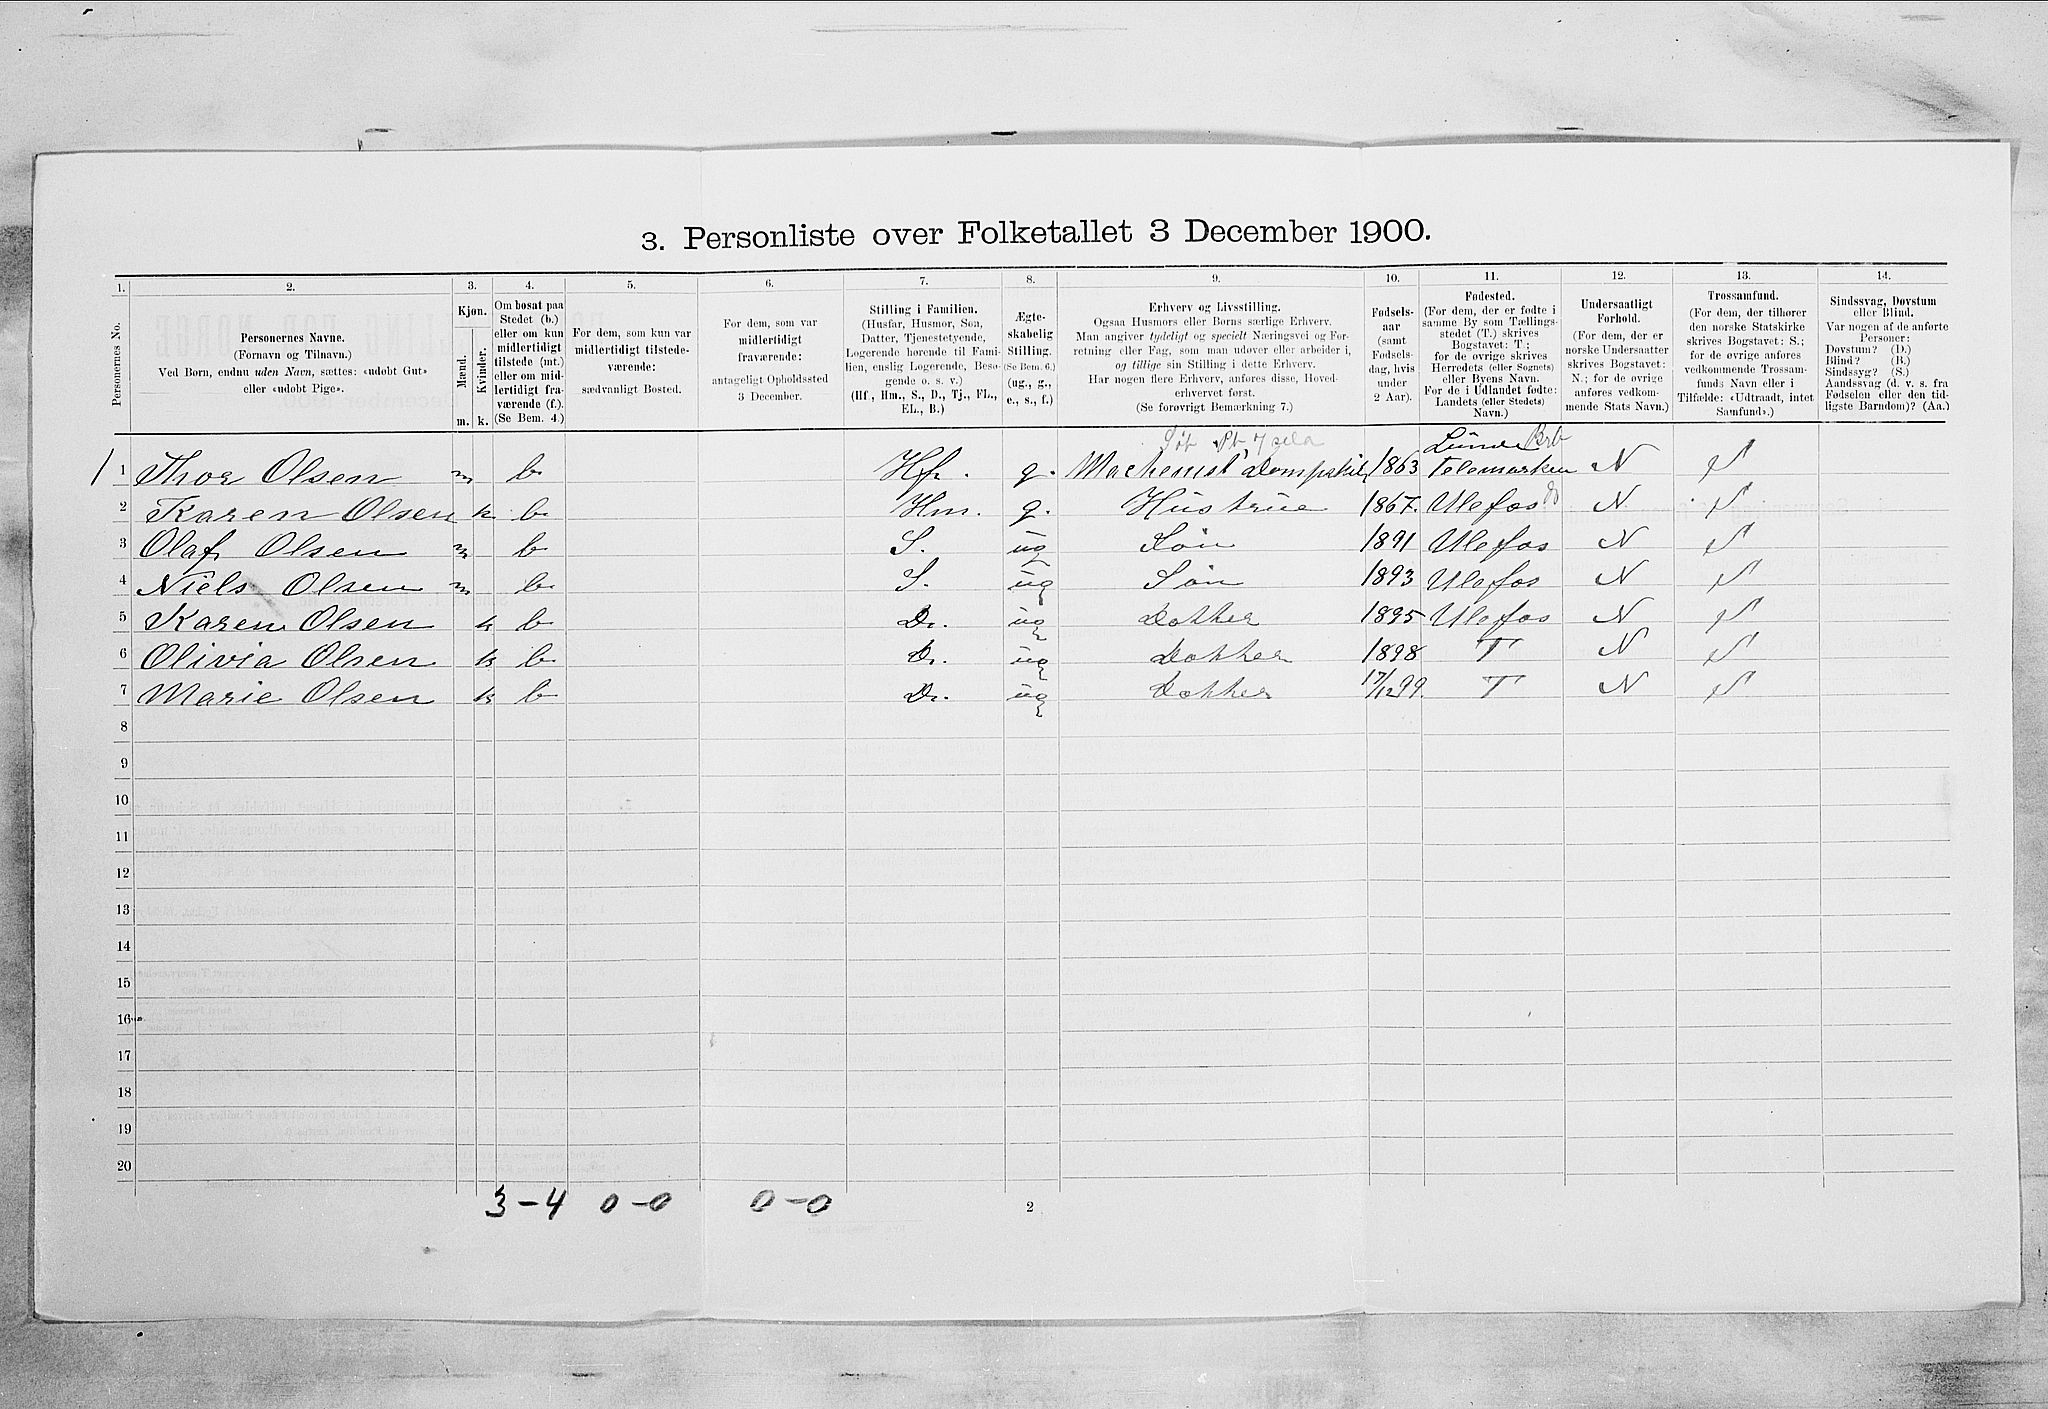 3. Personliste over Folketallet 3 December 1900.
1. 2. 3. 4. 5. 6. 7. 8. 9. 10. 11. 12. 13. 14.
Personernes No.
Personernes Navne.
(Fornavn og Tilnavn.)
Ved Børn, endnu uden Navn, sættes: «udobt Gut»
eller «udobt Pige».
Kjøn.
Mænd.
Kvinder.
m. k.
Om bosat paa
Stedet (b.)
eller om kun
midlertidigt
tilstede (mt.)
eller om mid-
lertidigt fra-
værende (f.).
(Se Bem. 4.)
For dem, som kun var
midlertidigt tilstede-
værende:
sædvanligt Bosted.
For dem, som var
midlertidigt
fraværende:
antageligt Opholdssted
3 December.
Stilling i Familien.
(Husfar, Husmor, Søn,
Datter, Tjenestetyende,
Logerende hørende til Fami-
lien, enslig Logerende, Besø-
gende o. s. v.)
(Hf., Hm., S., D., Tj., FL.,
EL., B.)
Ægte-
skabelig
Stilling.
(Se Bem. 6.)
(ug., g.,
e., s., f.)
Erhverv og Livsstilling.
Ogsaa Husmors eller Børns særlige Erhverv.
Man angiver tydeligt og specielt Næringsvei og For-
retning eller Fag, som man udøver eller arbeider i,
og tillige sin Stilling i dette Erhverv.
Har nogen flere Erhverv, anføres disse, Hoved-
erhvervet først.
(Se forøvrigt Bemærkning 7.)
Fødsels-
aar
(samt
Fødsels-
dag, hvis
under
2 Aar).
Fødested.
(For dem, der er fødte i
samme By som Tællings-
stedet (T.) skrives
Bogstavet: T;
for de øvrige skrives
Herredets (eller Sognets)
eller Byens Navn.
For de i Udlandet fødte:
Landets (eller Stedets)
Navn.)
Undersaatligt
Forhold.
(For dem, der er
norske Undersaatter
skrives Bogstavet:
N.; for de øvrige
anføres vedkom-
mende Stats Navn.)
Trossamfund.
(For dem, der tilhører
den norske Statskirke
skrives Bogstavet: S.;
for de øvrige anføres
vedkommende Trossam-
funds Navn eller i
Tilfælde: «Udtraadt, intet
Samfund».)
Sindssvag, Døvstum
eller Blind.
Var nogen af de anførte
Personer:
Døvstum? (D.)
Blind? (B.)
Sindssyg? (S.)
Aandssvag (d. v. s. fra
Fødselen eller den tid-
ligste Barndom)? (Aa.)
Lunde
1 Thor Olsen m b Hf. g. 1863 Telemarken N S
2 Karen Olsen k b Hm. g. Hustrue 1867. Ulefos do N S
3 Olaf Olsen m b S. ug Søn 1891 Ulefos N S
4 Niels Olsen m b S. ug Søn 1893 Ulefos N S
5 Karen Olsen k b D. ug Dotter 1895 Ulefos N S
6 Olivia Olsen k b D. ug Dotter 1898 T N S
7 Marie Olsen k b D. ug Dotter 17/12 99. T N S
8
9
10
11
12
13
14
15
16
17
18
19
20
3-4 0-0 0-0
2